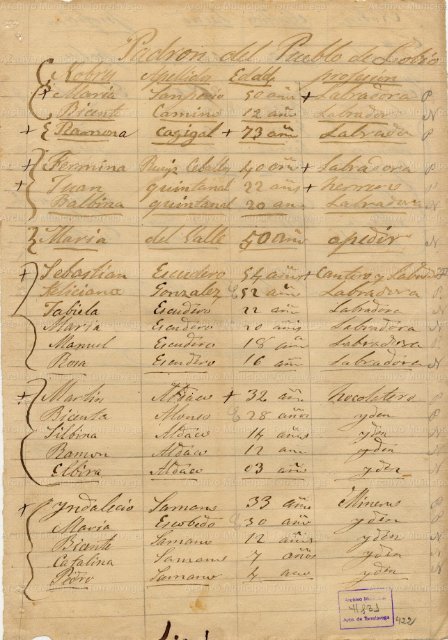 Padron del Pueblo de
Nobre Apellido Edad profesion
+ Maria 50 años + Labradora P
Bicente Camino 12 años Labrador N
+ Ramona cagigal + 73 años Labrada P
+ Fermina Ruiz 40 años + Labradora P
+ Juan quintanal 22 años + herrero N
Balbina quintanal 20 años Labradora N
Maria del Valle 50 años apedir N
+ Sebastian Escudero 54 años + Cantero y P
Feliciana Gonzalez 52 años Labradora P
Escudero 22 años Labradora N
Maria Escudero 20 años Labradora N
Manuel Escudero 18 años Labradora N
Rosa Escudero 16 años Labradora N
+ Martin Aldaco + 32 años P
Bicenta 28 años yden P
Silbina Aldaco 14 años yden N
Ramon Aldaco 12 años yden N
Elbira Aldaco 03 años yden
+ Yndalecio Samano 33 años Minero P
Maria Escobedo 30 años yden P
Bicente Samano 12 años yden N
Catalina Samano 7 años yden N
Pedro Samano 4 años yden N
Archivo Municipal
Ayto. de Torrelavega